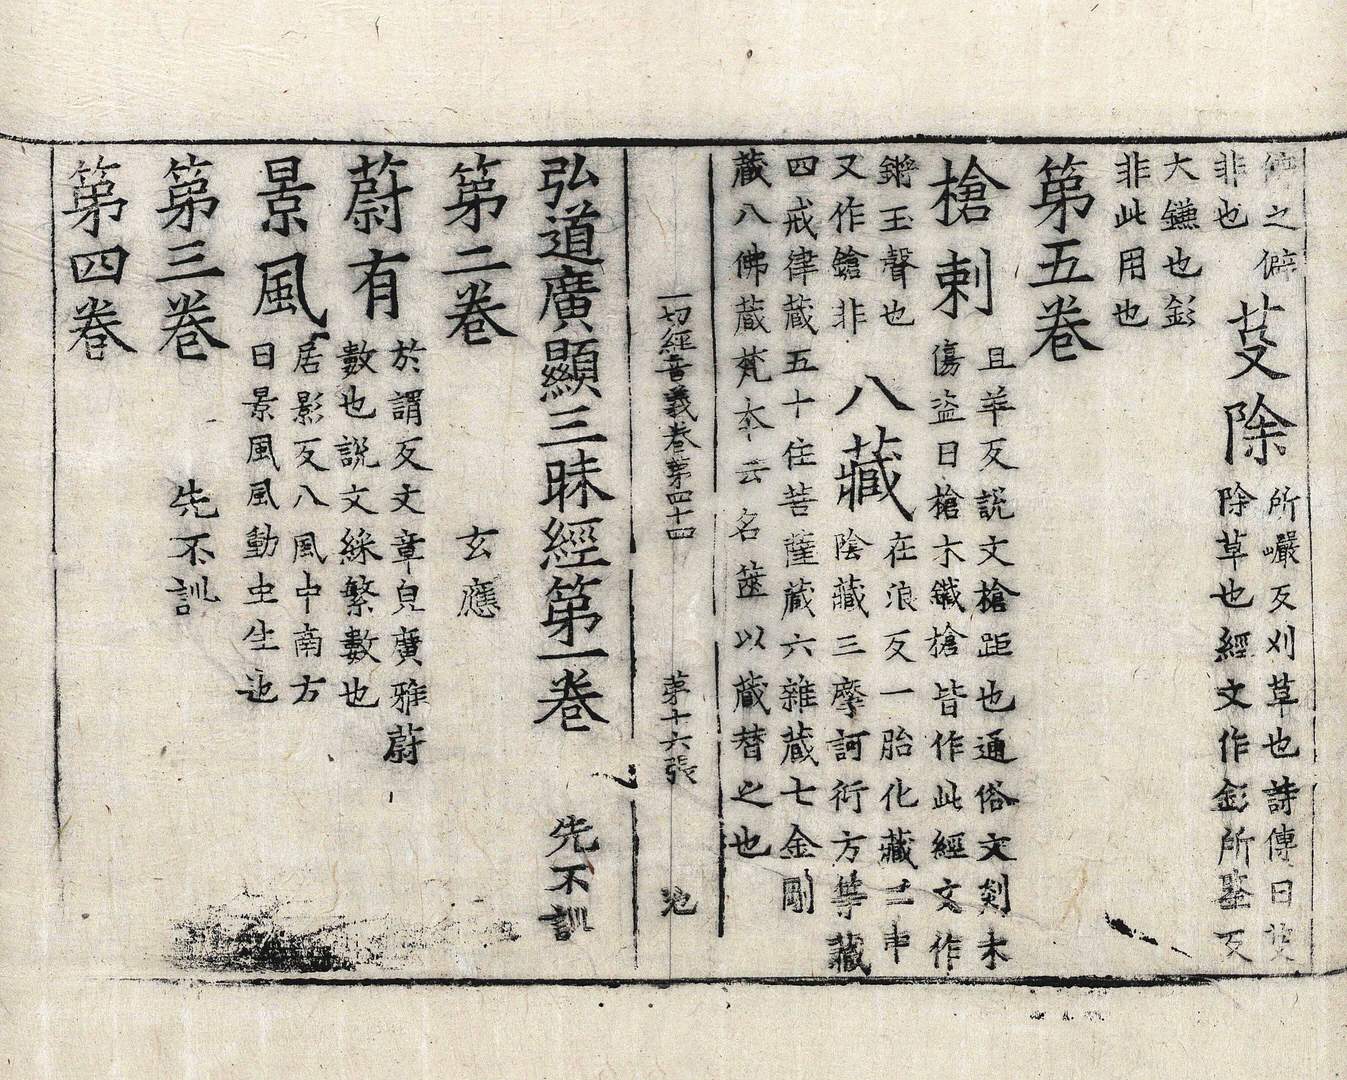 之僻
非也
芟除
所巖反刈草也詩傳曰芟
除草也經文作釤所鑒反
大鎌也釤
非此用也
第五卷
槍剌
且羊反說文槍距也通俗文剡木
傷盜曰槍木鐵槍皆作此經文作
鏘玉聲也
又作鎗非
八藏
在浪反一胎化藏二中
陰藏三摩訶衍方等藏
四戒律藏五十住菩薩藏六雜藏七金剛
藏八佛藏梵本云名篋以藏替之也
一切經音義卷第四十四 第十六張
弘道廣顯三昧經第一卷 先不訓
第二卷 玄應
蔚有
於謂反文章皃廣雅蔚
數也說文綵繁數也
景風
居影反八風中南方
曰景風風動虫生也
第三卷 先不訓
第四卷